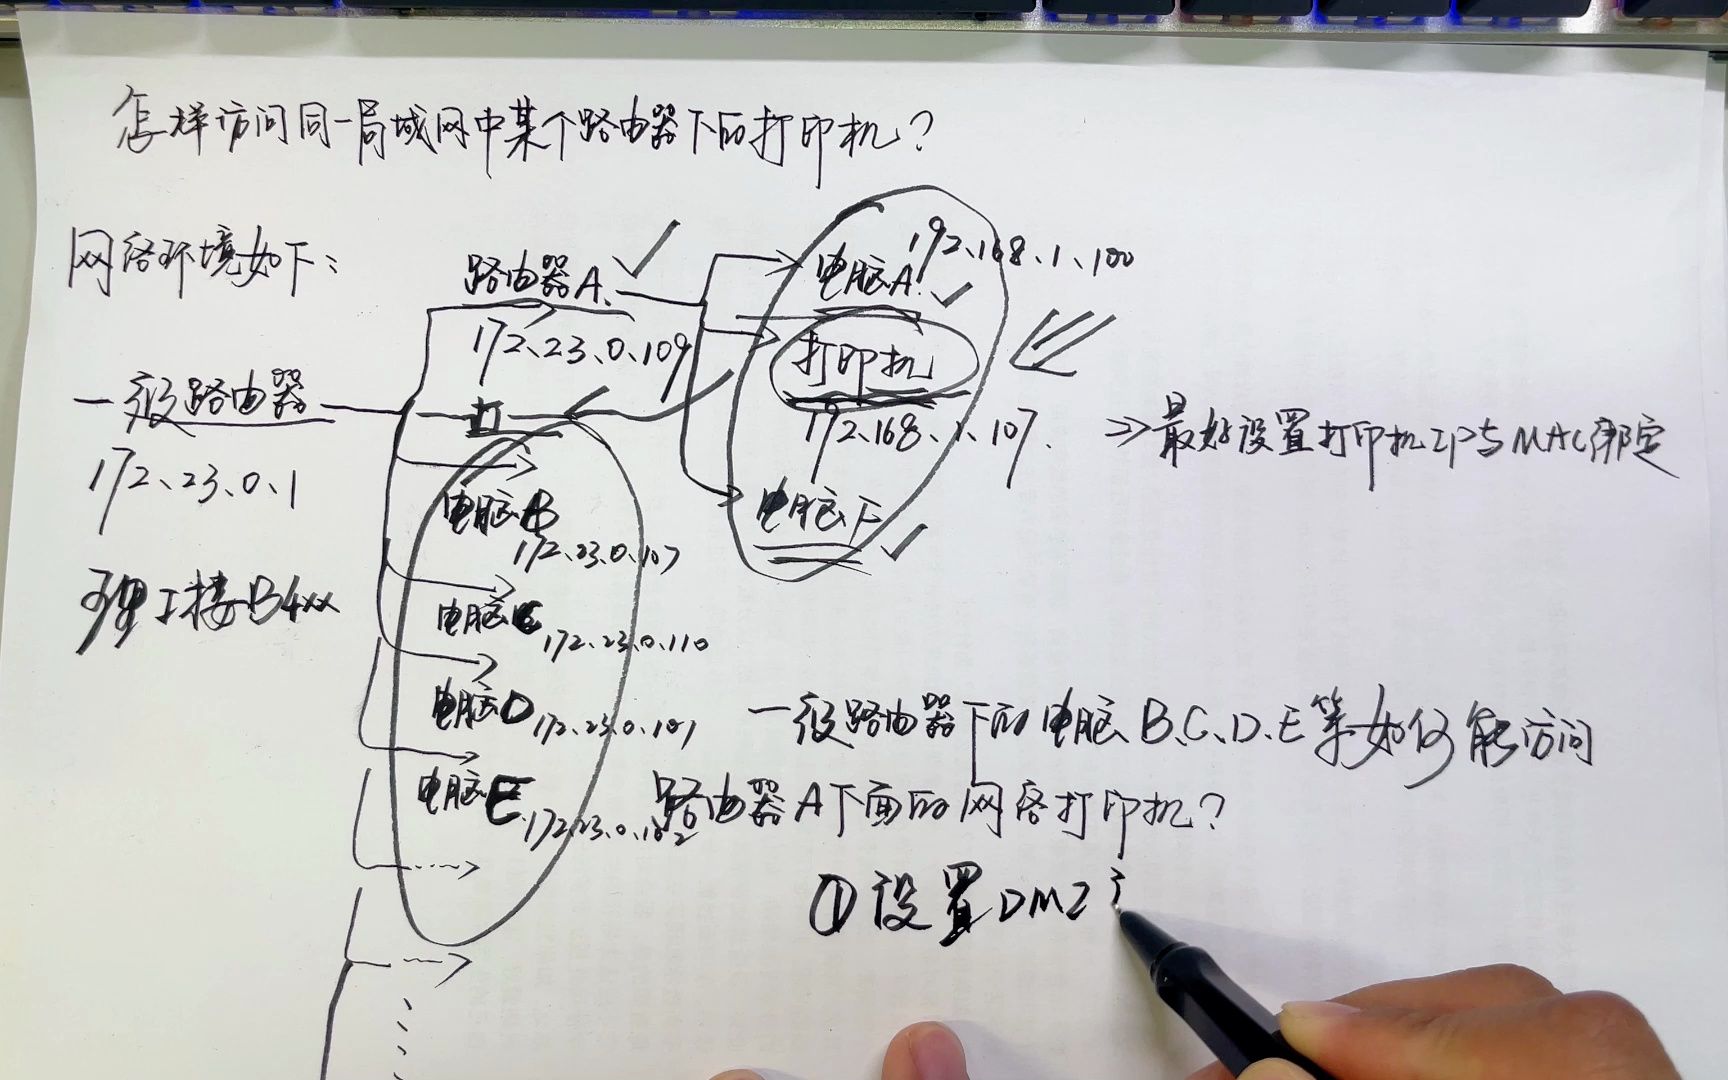 怎样访问同一局域网中某个路由器下的打印机？
网络环境如下：
路由器A
172.23.0.109
电脑A
192.168.1.100
打印机
192.168.1.107
⇒最好设置打印机IP与MAC绑定
电脑F
一级路由器
172.23.0.1
理工楼B4xx
打
电脑B
172.23.0.107
电脑C
172.23.0.110
电脑D
172.23.0.101
电脑E
172.23.0.102
一级路由器下的电脑B、C、D、E等如何能访问
路由器A下面的网络打印机？
①设置DMZ